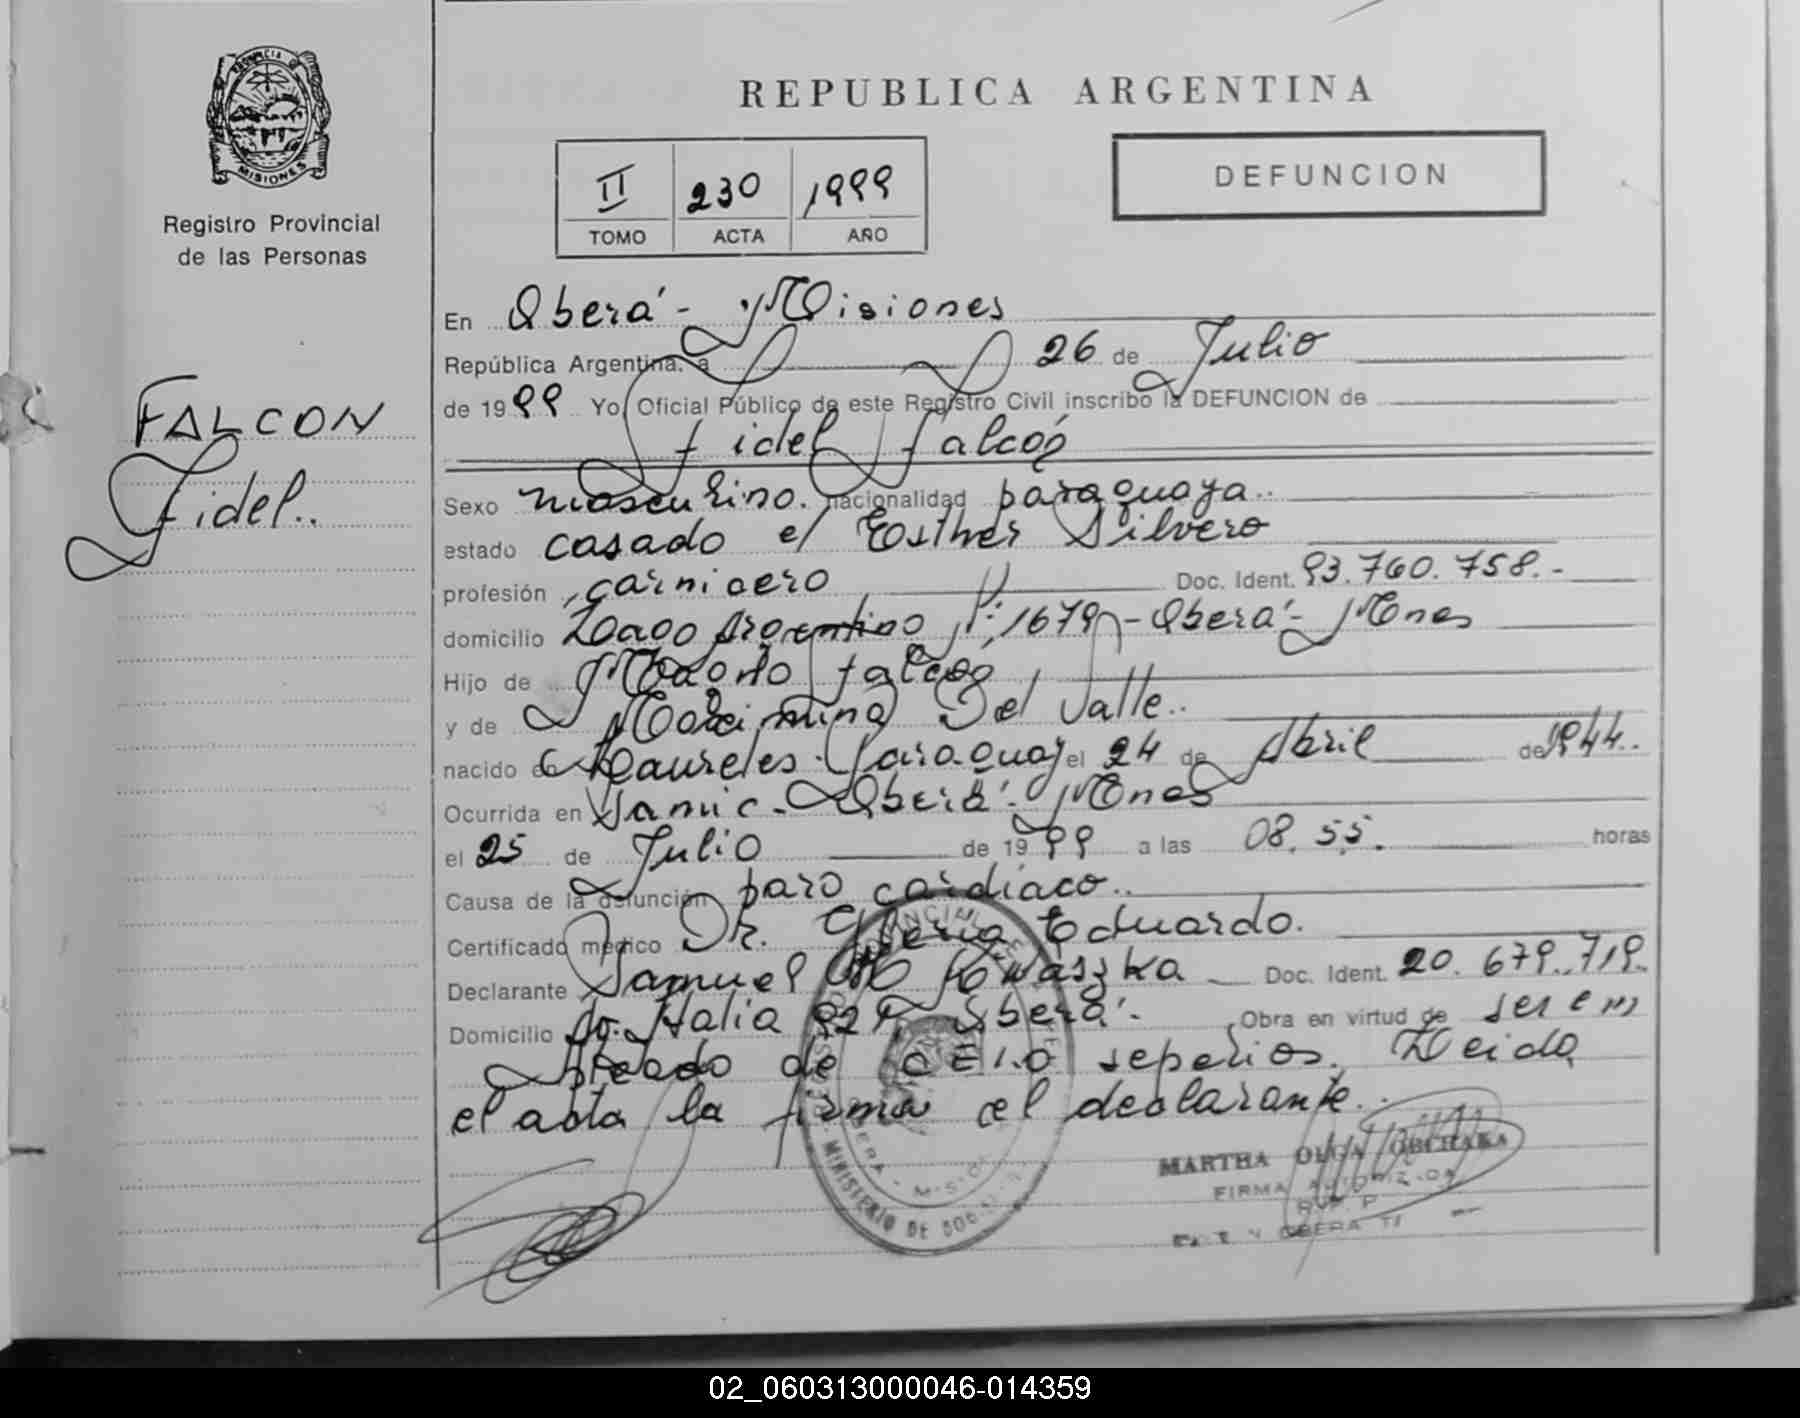 PROVINCIA DE
MISIONES
Registro Provincial
de las Personas
REPUBLICA ARGENTINA
II 230 1999
TOMO ACTA AÑO
DEFUNCION
FALCON
Fidel..
En Oberá - Misiones
República Argentina. a 26 de Julio
de 1999 Yo, Oficial Público de este Registro Civil inscribo la DEFUNCION de
Fidel Falcón
Sexo masculino. nacionalidad paraguaya..
estado casado c/ Esther Silvero
profesión carnicero Doc. Ident. 93.760.758.-
domicilio Lago Argentino Nº: 1679 - Oberá - Mnes
Hijo de Falcón
y de Maximina Del Valle..
nacido en Laureles - Paraguay el 24 de Abril de 1944..
Ocurrida en Samic - Oberá - Mnes
el 25 de Julio de 1999 a las 08.55. horas
Causa de la defunción paro cardíaco..
Certificado médico Dr. Eduardo.
Declarante Samuel Kwaszka Doc. Ident. 20.679.719.
Domicilio Av. Italia Oberá. Obra en virtud de ser em
pleado de sepelios. Leida
el acta la firma el declarante..
MINISTERIO DE
MARTHA OLGA
FIRMA AUTORIZADA
R.P.P.
OBERA
02_060313000046-014359